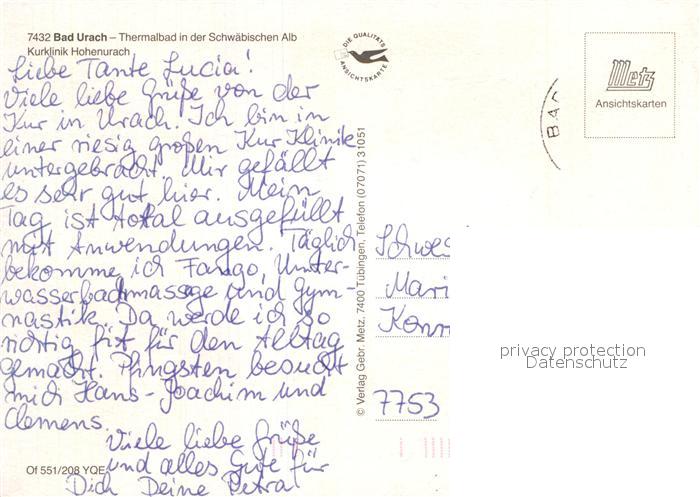 7432 Bad Urach – Thermalbad in der Schwäbischen Alb
Kurklinik Hohenurach
Liebe Tante Lucia!
Viele liebe Grüße von der
Kur in Urach. Ich bin in
einer riesig großen Kur Klinik
untergebracht. Mir gefällt
es sehr gut hier. Mein
Tag ist total ausgefüllt
mit Anwendungen. Täglich
bekomme ich Fango, Unter-
wasserbachmassage und Gym-
nastik. Da werde ich so
richtig fit für den Alltag
gemacht. Pfingsten besucht
mich Hans-Joachim und
Clemens.
Viele liebe Grüße
und alles Gute für
Dich Deine Petra
Of 551/208 YQE
DIE QUALITÄTS
ANSICHTSKARTE
© Verlag Gebr. Metz, 7400 Tübingen, Telefon (07071) 31051
Metz
Ansichtskarten
BAD
Schwes
Mari
Konr
7753
privacy protection
Datenschutz